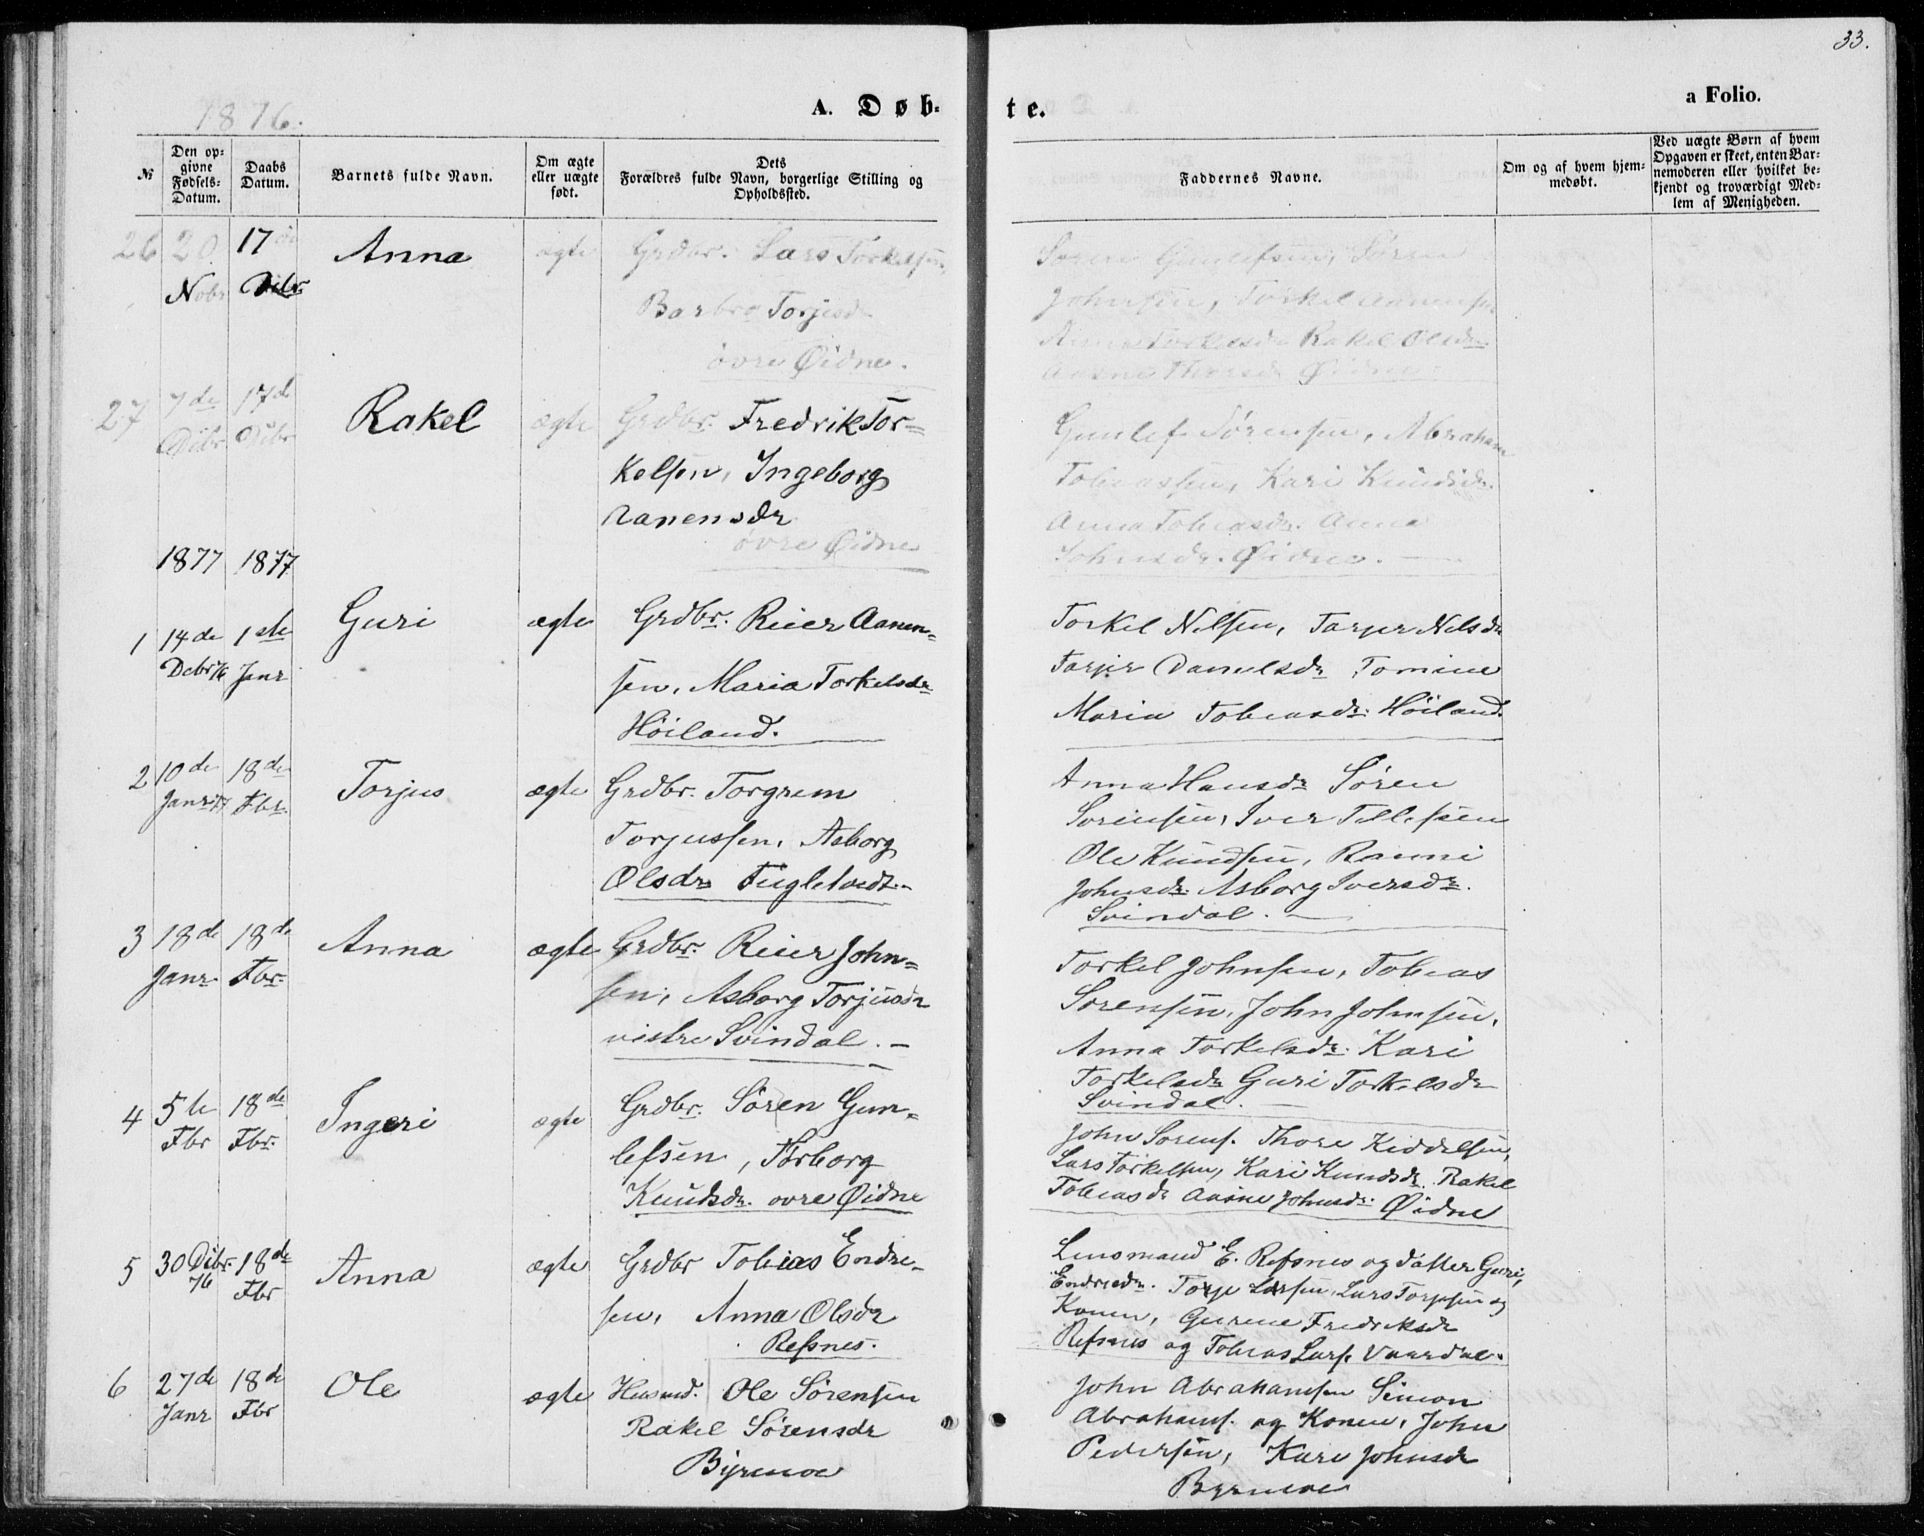 33.
1876.
A. Døb-
te.
a Folio.
№
Den op-
givne
Fødsels-
Datum.
Daabs
Datum.
Barnets fulde Navn.
Om ægte
eller uægte
født.
Dets
Forældres fulde Navn, borgerlige Stilling og
Opholdssted.
Faddernes Navne.
Om og af hvem hjem-
medøbt.
Ved uægte Børn af hvem
Opgaven er skeet, enten Bar-
nemoderen eller hvilket be-
kjendt og troværdigt Med-
lem af Menigheden.
26
20
Nobr
17de
Dcbr
Anna
ægte
Grdbr. Lars Torkelsen,
Barbro Torjusdr
övre Øidne.
Søren Gunlefsen, Søren
Johnsen, Torkel Aanensen
Anna Torkelsdr Rakel Olsdr
Aasne Øidne.
27
7de
Dcbr
17de
Dcbr
Rakel
ægte
Grdbr. Fredrik Tor-
kelsen, Ingeborg
Aanensdr
övre Øidne
Gunlef Sørensen, Abraham
Tobiassen, Kari Knudsdr.
Anna Tobiasdr. Anna
Johnsdr. Øidne.
1877
1877
1
14de
Debr 76
1ste
Janr
Guri
ægte
Grdbr. Reier Aanen-
sen, Maria Torkelsdr
Höiland.
Torkel Nilsen, Tarjer Nilsdr
Tarjer Danielsdr Tomine
Maria Tobiasdr. Höiland.
2
10de
Janr 77
18de
Fbr.
Torjus
ægte
Grdbr. Torgrem
Torjussen, Asborg
Olsdr Fugletvedt.
Anna Hansdr Søren
Sorensen, Iver Tellefsen
Ole Knudsen, Ranni
Johnsdr. Asborg Iversdr.
Svindal.
3
18de
Janr
18de
Fbr.
Anna
ægte
Grdbr. Reier John-
sen, Asborg Torjusdr
vestre Svindal.
Torkel Johnsen, Tobias
Sorensen, John Johnsen,
Anna Torkelsdr. Kari
Torkelsdr Guri Torkelsdr
Svindal.
4
5te
Fbr
18de
Fbr.
Ingeri
ægte
Grdbr. Sören Gun-
lefsen, Torborg
Knudsdr. ovre Øidne
John Sorens. Thore Kiddelsen,
Lars Torkelsen, Kari Knudsdr. Rakel
Tobiasdr Aasne Johnsdr. Øidne
5
30 Dcbr.
76
18de
Fbr
Anna
ægte
Grdbr Tobias Endre-
sen, Anna Olsdr
Refsnes.
Lensmand E. Refsnes og datter Guri,
Endresdr. Torje Larsen, Lars Torjesen og
Konen, Gurine Fredriksdr
Refsnes og Tobias Lars. Vaardal.
6
27de
Janr
18de
Fbr
Ole
ægte
Husmd. Ole Sörensen
Rakel Sörensdr
Byremoe
John Abrahamsen Simon
Abrahams. og Konen, John
Pedersen, Kari Johnsdr
Byremoe